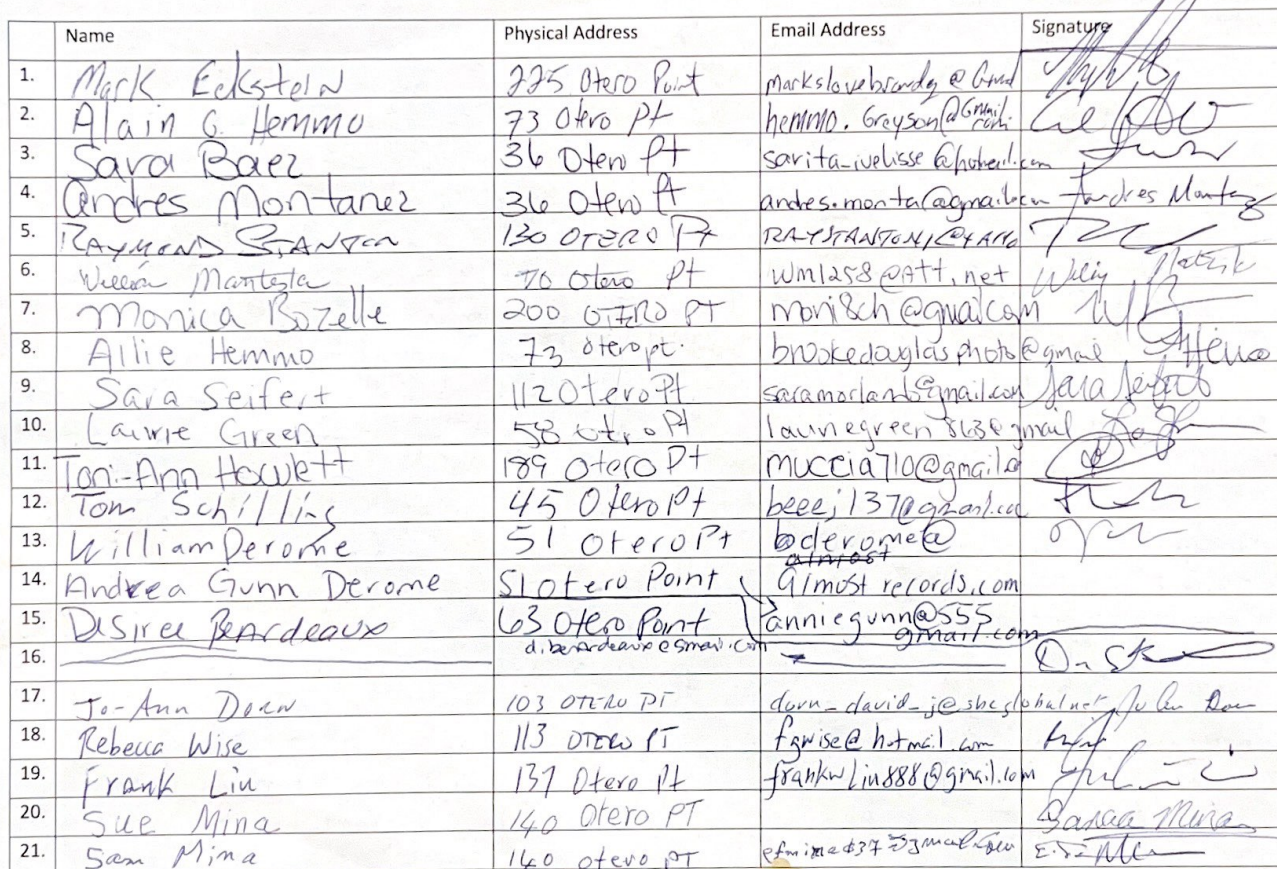 Name Physical Address Email Address Signature
1. Mark Eckstein 225 Otero Point markslovebrandy@Gmail
2. Alain G. Hemmo 73 Otero Pt hemmo.Greyson@Gmail.com
3. Sara Baez 36 Otero Pt sarita-ivelisse@hotmail.com
4. Andres Montanez 36 Otero Pt andres.monta@gmail.com Andres Montanez
5. RAYMOND STANTON 130 OTERO Pt RAYSTANTON1@YAHOO
6. 70 Otero Pt wm1258@Att.net
7. Monica Bozelle 200 OTERO PT moni8ch@gmailcom
8. Allie Hemmo 73 otero pt. brookedouglasphoto@gmail AHemmo
9. Sara Seifert 112 Otero Pt saramorland@gmail.com Sara Seifert
10. Laurie Green 58 otero Pt lauriegreen863@gmail
11. Toni-Ann Howlett 189 Otero Pt muccia710@gmail.c
12. Tom Schilling 45 Otero Pt beeej137@gmail.com
13. William Derome 51 Otero Pt bderome@
almost
14. Andrea Gunn Derome 51 Otero Point almost records.com
15. Desiree Beardeaux 63 Otero Point anniegunn@555
gmail.com
d.beardeaux@gmail.com
16.
17. Jo-Ann Dorn 103 OTERO PT dorn_david_j@sbcglobal.net Jo Ann Dorn
18. Rebecca Wise 113 OTERO PT fgwise@hotmail.com
19. Frank Liu 137 Otero Pt frankwliu888@gmail.com
20. Sue Mina 140 Otero PT Sanaa Mina
21. Sam Mina 140 otero PT